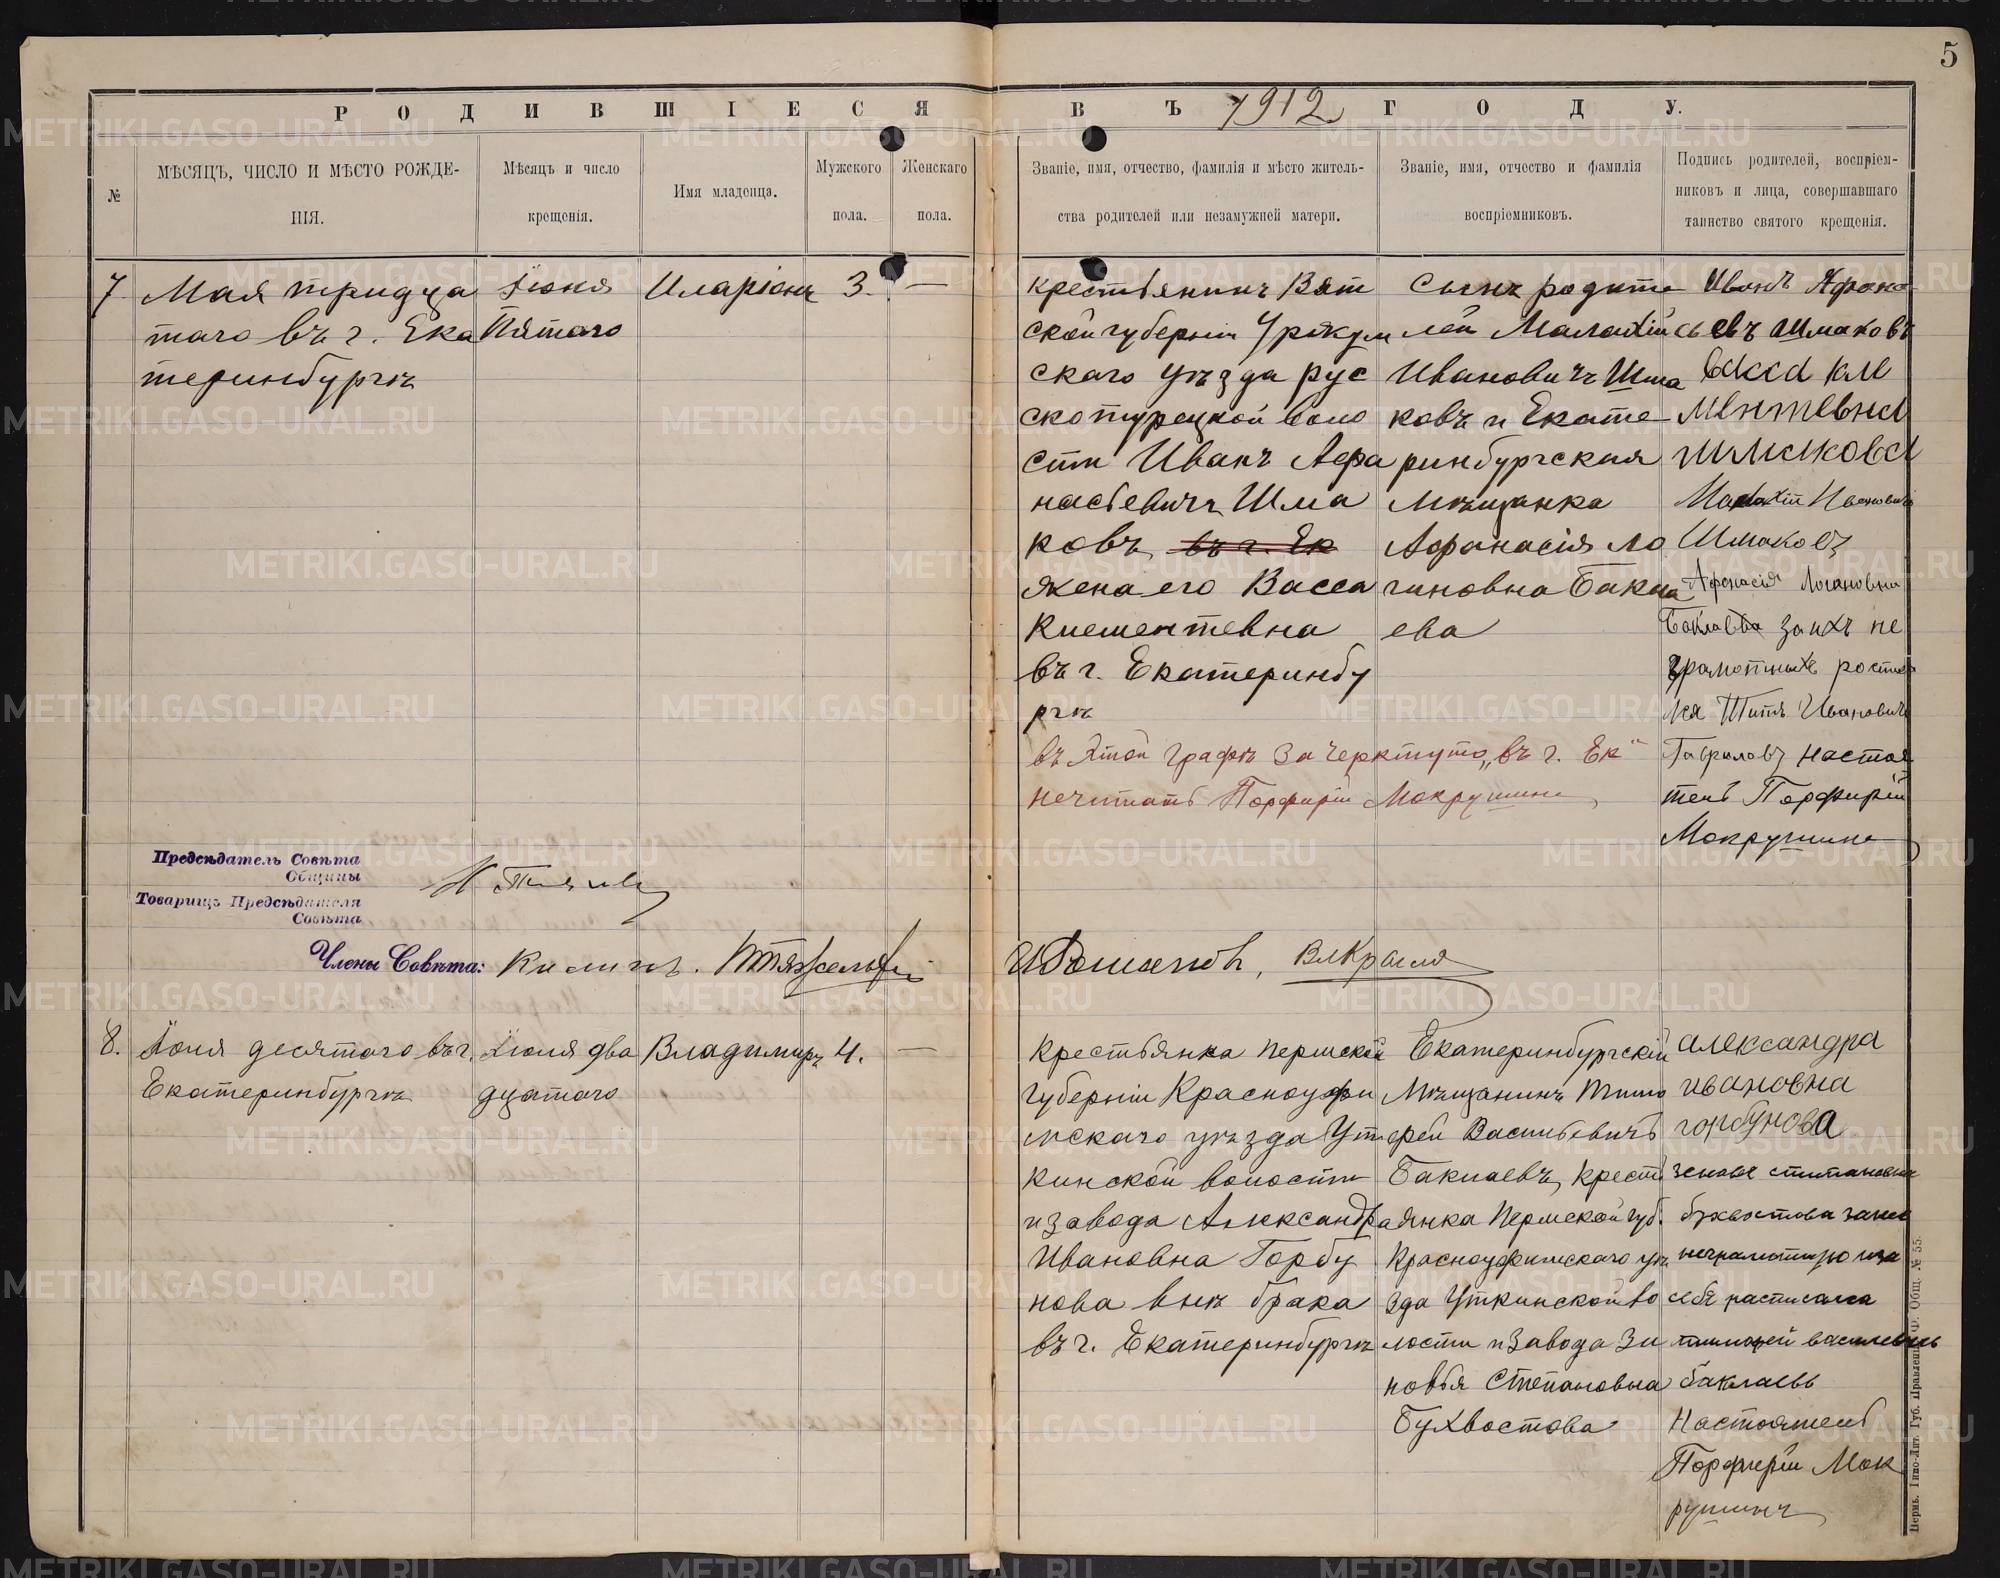 5
РОДИВШІЕСЯ ВЪ 1912 ГОДУ.
№
МѢСЯЦЪ, ЧИСЛО И МѢСТО РОЖДЕ-
НІЯ.
Мѣсяцъ и число
крещенія.
Имя младенца.
Мужского
пола.
Женскаго
пола.
Званіе, имя, отчество, фамилія и мѣсто житель-
ства родителей или незамужней матери.
Званіе, имя, отчество и фамилія
воспріемниковъ.
Подпись родителей, воспріем-
никовъ и лица, совершавшаго
таинство святого крещенія.
7
Мая тридца
таго въ г. Ека
теринбургѣ
Іюня
Пятаго
Иларіонъ
3.
—
крестьянинъ Вят
ской губерніи Уржум
скаго уѣзда рус
скотурецкой воло
сти Иванъ Афа
насьевичъ Шма
ковъ въ г. Ек
жена его Васса
Климентевна
въ г. Екатеринбу
ргѣ
въ 5той графѣ зачеркнуто „въ г. Ек"
нечитать Порфирій Мокрушинъ
Сынъ родите
лей Малахій
Ивановичъ Шма
ковъ и Екате
ринбургская
Мѣщанка
Афанасія ло
гиновна Бакла
ева
Иванъ Афана
сьевъ Шмаковъ
васса кли
ментевна
шмакова
Малахій Ивановичъ
Шмаковъ
Афонасія Логиновна
Баклаева за ихъ не
грамотныхъ роспи
Титъ Ивановичъ
Гавриловъ Настоя
тель Порфирій
Мокрушинъ
Предсѣдатель Совѣта
Общины
Товарищъ Предсѣдателя
Совѣта
Члены Совѣта:
8.
Іюля десятаго въ г.
Екатеринбургѣ
Іюля два
дцатаго
Владимиръ
4.
—
Крестьянка пермской
губерніи Красноуфи
мскаго уѣзда Ут
кинской волости
и завода Александра
Ивановна Горбу
нова внѣ брака
въ г. Екатеринбургѣ
Екатеринбургскій
Мѣщанинъ Тимо
фей Васильевичъ
Баклаевъ, кресть
янка Пермской губ.
Красноуфимскаго уѣ
зда Уткинской во
лости и завода Зи
новья Степановна
Бухвостова
александра
ивановна
горбунова
бухвостова за нее
неграмотную и за
себя расписался
тимофей василевичь
баклаевь
Настоятель
Порфирій Мок
рушинъ
Пермь. Типо-Лит. Губ. Правленія. О. Общ. № 55.
METRIKI.GASO-URAL.RU